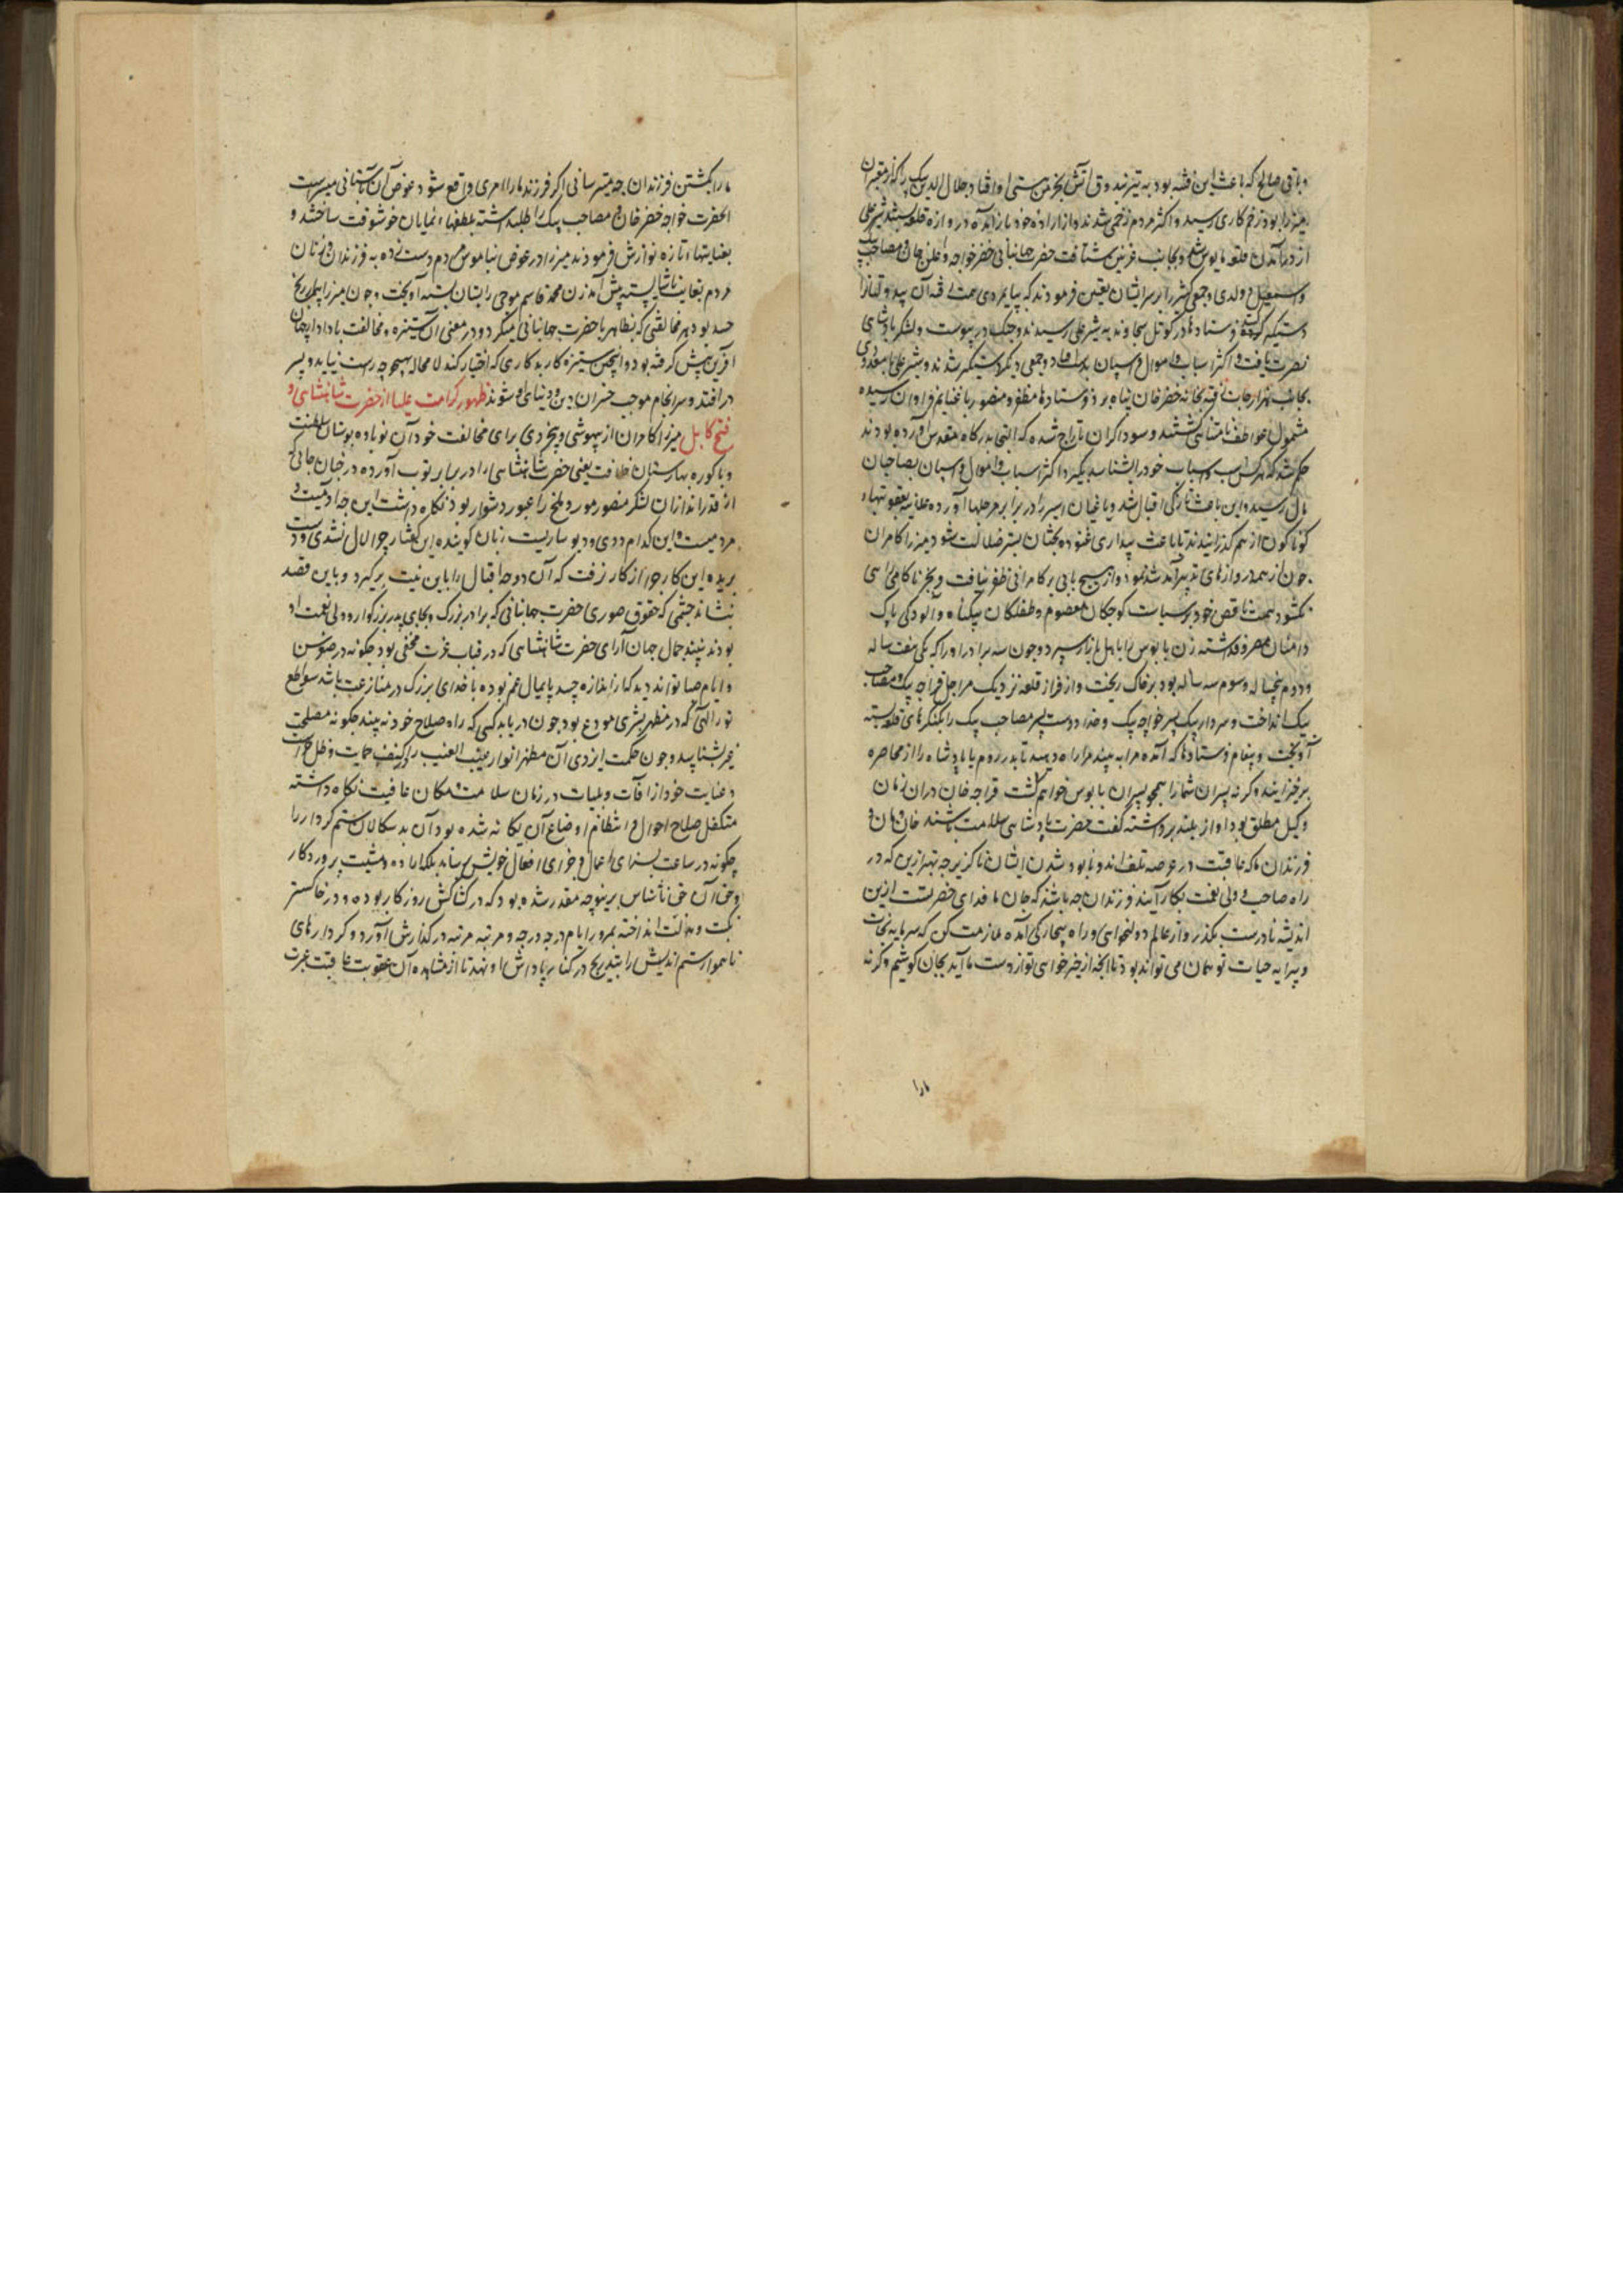 و باقی صالح که باعث این فتنه بود به تیر بندوق آتش بخرمن هستی او افتاد جلال الدین بیک را که از معتبران
میرزا بود زخم کاری رسید و اکثر مردم زخمی شدند و از اراده خود باز آمده دروازه قلعه بستند شیر علی
از در آمدن قلعه مایوس شده بجانب غزنین شتافت حضرت جهانبانی خضر خواجه و مصاحب بیک
و اسمعیل دولدی و جمعی کثیر را بر سر ایشان تعین فرمودند که
دستگیر کرده فرستادها در کوتل سجاوند به شیر علی رسیدند و جنگ در پیوست و لشکر بادشاهی
نصرت یافت و اکثر اسباب و اموال و اسپان بدست افتاد و جمعی دیگر دستگیر شدند و شیر علی با معدودی
بجانب هزارجات رفته بخانه خضر خان پناه برد فرستادها مظفر و منصور با غنایم فراوان رسیده
مشمول عواطف بادشاهی گشتند و سوداگران تاراج شده که التجا بدرگاه مقدس آورده بودند
حکم شد که هر کس اسپ و اسباب خود را بشناسد بگیرد اکثر اسباب و اموال و اسپان بصاحبان
مال رسید و این باعث تازگی اقبال شد و یاغیان اسیر را در برابر مورچلها آورده علانیه بعقوبتهاء
گوناگون از هم گذرانیدند تا باعث بیداری غنوده بختان بستر ضلالت شود میرزا کامران
چون از همه دروازهای تدبیر او بند شد و از هیچ بابی بر کامرانی ظفر نیافت و بجز ناکامی راهی
نگشود همت ناقص خود بر سیاست کوچکان معصوم و طفلکان بیگناه و آلودگی پاک
دامنان مصروف داشته زن بابوس را باهل بازار سپرد و چون سه برادر او را که یکی هفت ساله
و دوم پنجساله و سوم سه ساله بود بر خاک ریخت و از فراز قلعه نزدیک مورچل قراجه بیک و مصاحب
بیک انداخت و سردار بیک پسر قراجه بیک و خدا دوست پسر مصاحب بیک را بکنگرهای قلعه بسته
آویخت و پیغام فرستادها که آمده مرا به بینید مرا راه دهید تا بدر روم یا بادشاه را از محاصره
برخیزانید وگرنه پسران شما را همچو پسران بابوس خواهم کشت قراجه خان در آن زمان
وکیل مطلق بود آواز بلند برداشته گفت حضرت بادشاهی سلامت باشند خان و مان و
فرزندان ما که عاقبت در عرصه تلف اند و نابود شدن ایشان ناگزیر چه بهتر ازین که در
راه صاحب و ولی نعمت بکار آیند فرزندان چه باشند که جان ما فدای حضرتست ازین
اندیشه نادرست بگذر و از عالم دولتخواهی و راه بیچارگی آمده ملازمت کن که سرمایه نجات
و پیرایه حیات تو همان می تواند بود تا آنچه از خیر خواهی تو از دست ما آید بجان کوشیم وگرنه
مارا
ما را بکشتن فرزندان چه میترسانی اگر فرزند ما را امری واقع شود عوض آن بآسانی میسر است
آنحضرت خواجه خضر خان و مصاحب بیک را طلبداشته بلطفهاء نمایان خوشوقت ساختند و
بعنایتهاء تازه نوازش فرمودند میرزا در عوض بناموس مردم دست زده به فرزندان و زنان
مردم بغایت ناشایسته پیش آمد زن محمد قاسم موجی را پستان بسته آویخت و چون میرزا
حسد بود بهر مخالفتی که بظاهر با حضرت جهانبانی میکرد و در معنی آن ستیزه و مخالفت با دادار جهان
آفرین پیش گرفته بود و اینچنین ستیزه کار بد کاری که اختیار کند لا محاله بهیچ وجه راست نیاید و پسر
در افتد و سرانجام موجب خسران دین و دنیای او شوند ظهور کرامت علیا از حضرت شاهنشاهی و
فتح کابل میرزا کامران از بیهوشی و بیخردی برای مخالفت خود آن نوباوه بوستان سلطنت
و باکوره بهارستان خلافت یعنی حضرت شاهنشاهی را در برابر توپ آورده در چنان جائی که
از قدر اندازان لشکر منصور مور و ملخ را عبور دشوار بود نگاه داشت این چه آدمیست و
مردمیست و این کدام ددی و دیو ساریست زبان گوینده این گفتار چرا لال نشد و دست
برنده این کار چرا از کار نرفت که آن دوحه اقبال را باین نیت برگیرد و باین قصد
بنشاند چشمی که حقوق صوری حضرت جهانبانی که برادر بزرگ و بجای پدر بزرگوار و ولی نعمت او
بودند نبیند جمال جهان آرای حضرت شاهنشاهی که در قباب عزت مخفی بود چگونه در صغر سن
و ایام صبا تواند دید که از اندازه حسد پایمال غم بوده با خدای بزرگ در منازعت باشد سواطع
نور الهی که در مظهر بشری مودع بود چون دریابد کسی که راه صلاح خود نه بیند چگونه مصلحت
غیر بشناسد و چون حکمت ایزدی آن مظهر انوار غیب الغیب را در کنف حمایت و ظل حراست
و عنایت خود از آفات و بلیات در زمان سلامت و مکان عافیت نگاه داشته
متکفل صلاح احوال و انتظام اوضاع آن یگانه شده بود آن بد سگالان ستم کردار را
چگونه در ساعت بسزای اعمال و جزای افعال خویش برساند بلکه اراده و مشیت پروردگار
در حق آن حق ناشناس برینوجه مقدر شده بود که در کشاکش روزگار بوده و در خاکستر
نکبت و مذلت انداخته بمرور ایام درجه درجه و مرتبه مرتبه در گذارش آورد و کردارهای
ناهموار ستم اندیش را بتدریج در کنار پاداش او نهد تا از مشاهده آن عقوبت عاقبت عبرت